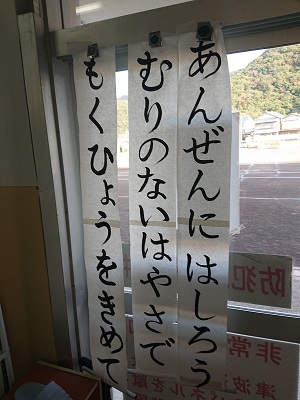 あんぜんにはしろう
むりのないはやさで
もくひょうをきめて
防犯
非常
津波